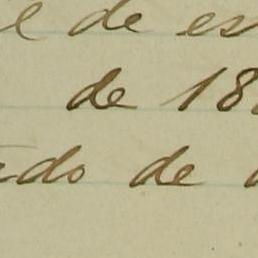 de es
de 18
do de